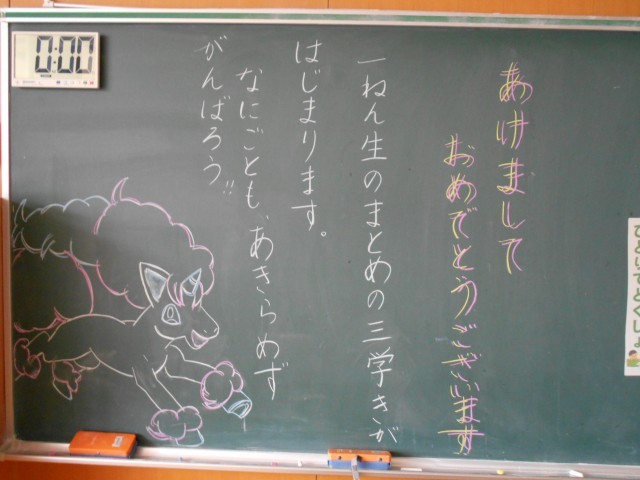 あけまして
おめでとうございます
一ねん生のまとめの三学きが
はじまります。
なにごとも、あきらめず
がんばろう!!
0:00
ひょいでとくしょ